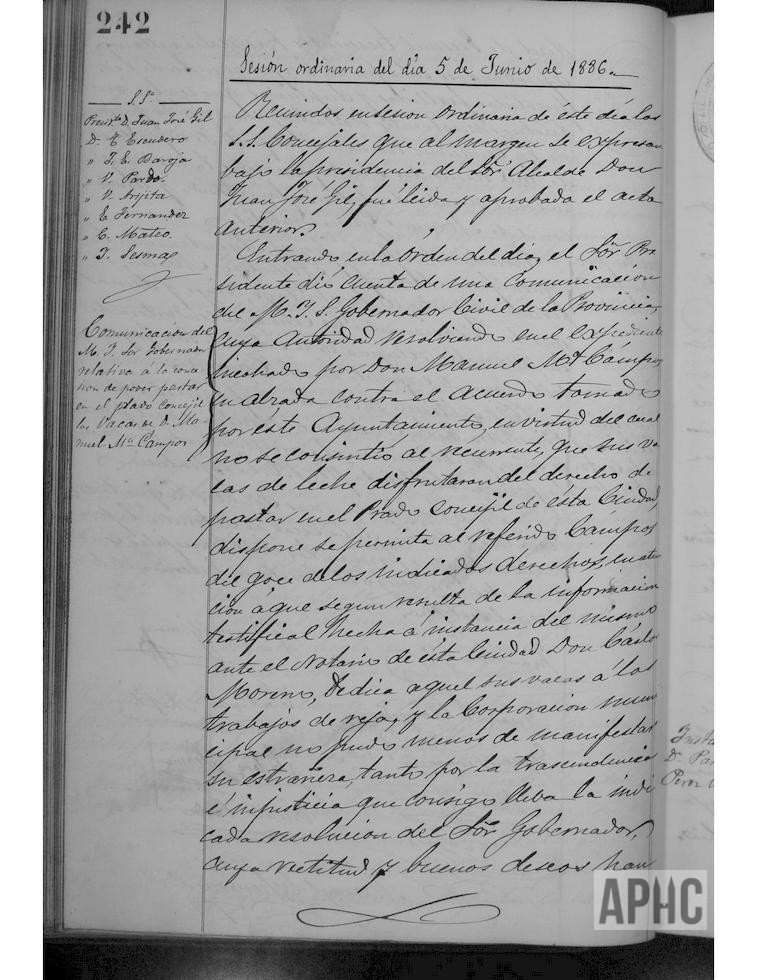 242
Sesión ordinaria del día 5 de Junio de 1886.
S.S.
Presidte D. Juan José Gil
D. E Escudero
" T. E. Baroja
" V. Pardo.
" V. Arijita
" E Fernandez
" C. Mateo.
" T. Sesma
Comunicacion del
M. I. Sor Gobernador
relativa á la conce
sion de poder pastar
en el prado concejil
las Vacas de D. Ma
nuel Ma Campos
Reunidos en sesion ordinaria de éste dia los
S.S. Concejales que al margen se expresan
bajo la presidencia del Sor Alcalde Don
Juan José Gil, fué leida y aprobada el acta
anterior.
Entrando en la órden del dia, el Sor Pre
sidente dió cuenta de una Comunicacion
del M. I. S. Gobernador Civil de la Provincia,
cuya Autoridad resolviendo en el expediente
incohado por Don Manuel Ma Campos
en alzada contra el acuerdo tomado
por éste Ayuntamiento, en virtud del cual
no se consintió al recurrente, que sus va
cas de leche disfrutaran del derecho de
pastar en el Prado concejil de esta Ciudad,
dispone se permita al referido Campos
del goce de los indicados derechos, en aten
cion á que segun resulta de la informacion
testifical hecha á instancia del mismo
ante el Notario de ésta Ciudad Don Cárlos
Moreno, dedica aquel sus vacas á los
trabajos de reja, y la Corporacion muni
cipal no pudo menos de manifestar
su estrañeza, tanto por la trascendencia
é injusticia que consigo lleba la indi
cada resolucion del Sor Gobernador,
cuya rectitud y buenos deseos han
Insta
D. Pa
Perez
APHC